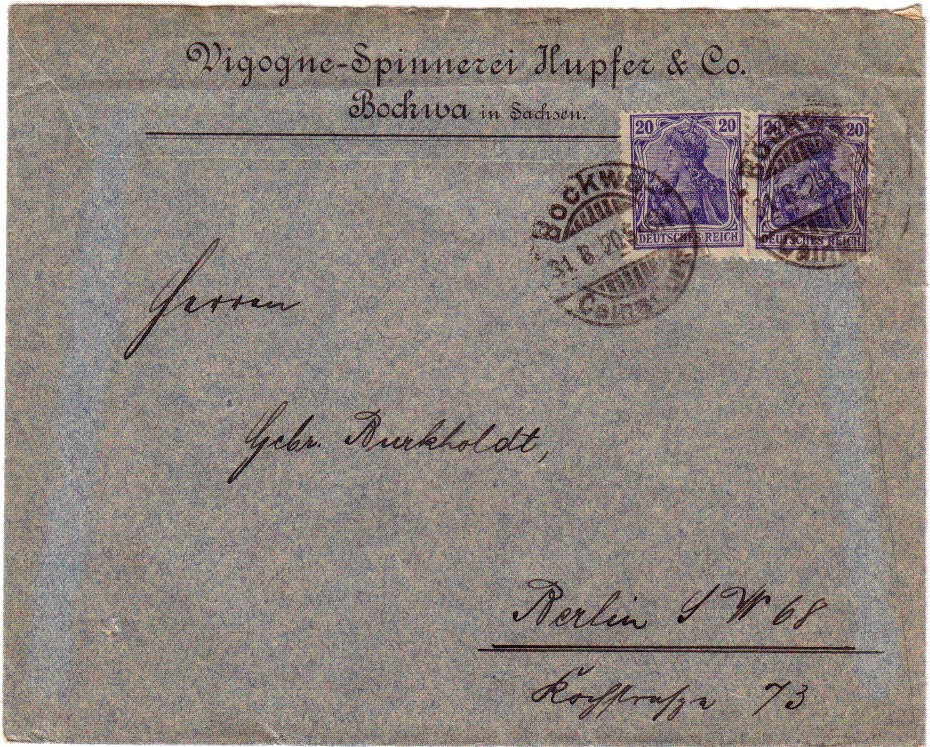 Vigogne-Spinnerei Hupfer & Co.
Bockwa in Sachsen.
20 20
DEUTSCHES REICH
20 20
DEUTSCHES REICH
Bockwa
31.8.20
Bockwa
Herren
Gebr. Burkholdt,
Berlin S W 68
Kochstraße 73